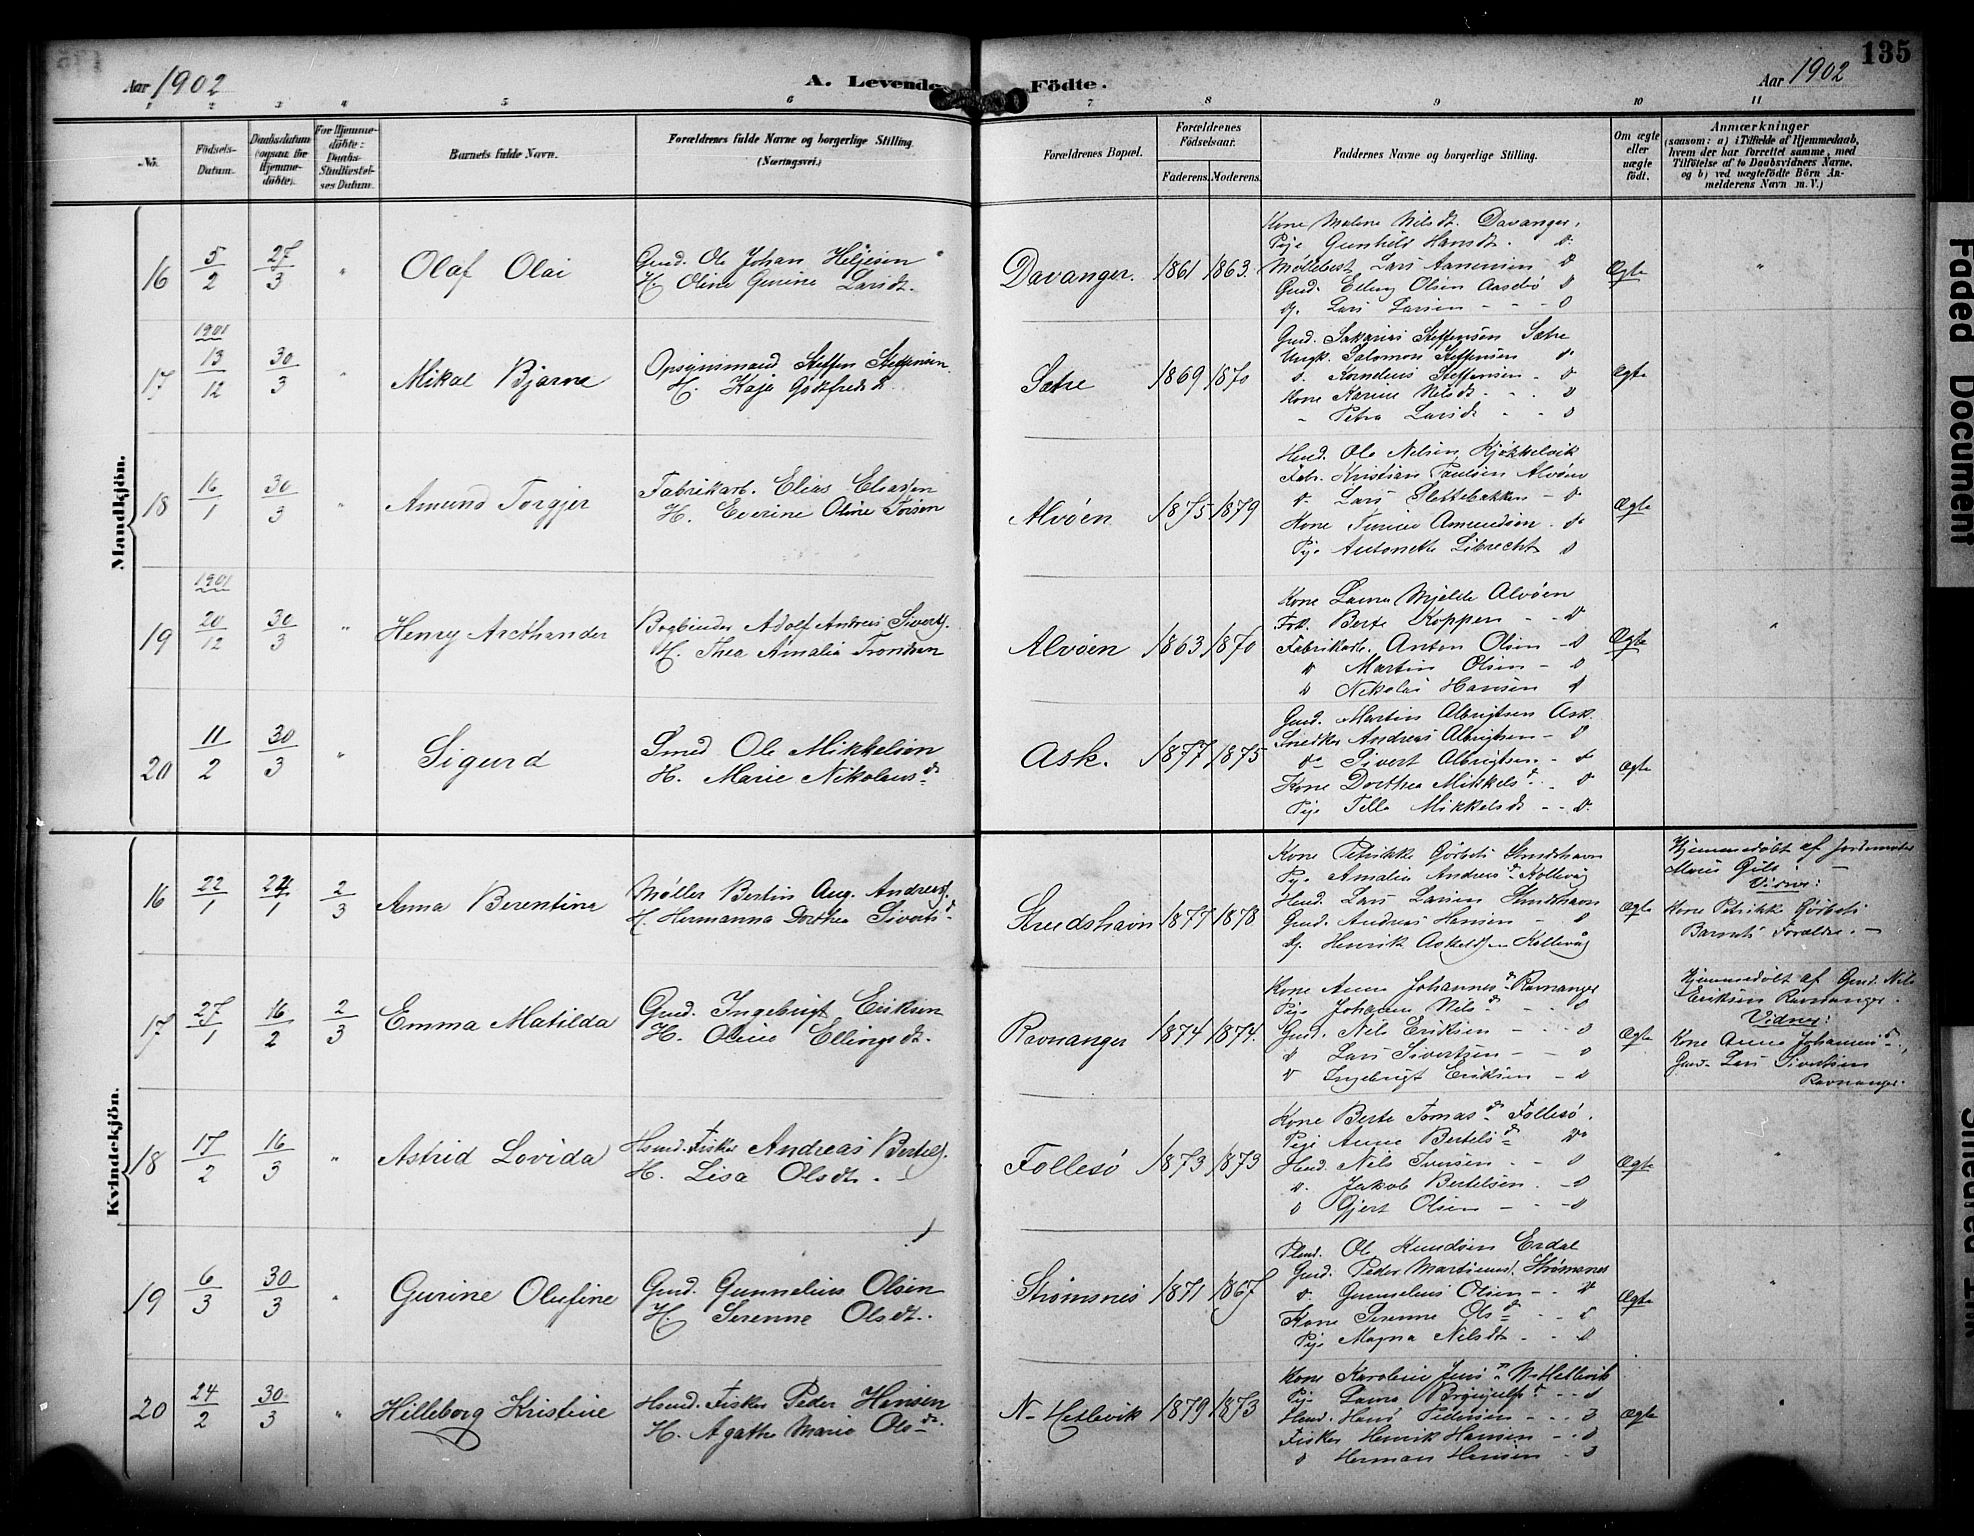 135
Aar 1902
A. Levende Födte.
Aar 1902
1 2 3 4 5 6 7 8 9 10 11
No.
Födsels-Datum.
Daabsdatum
For Hjemme-döbte: Daabs-Stadfæstel-ses Datum.
Barnets fulde Navn.
Forældrenes fulde Navne og borgerlige Stilling.
(Næringsvei.)
Forældrenes Bopæl.
Forældrenes Födselsaar.
Faderens. Moderens.
Faddernes Navne og borgerlige Stilling.
Om ægte eller uægte födt.
Anmærkninger
(saasom: a) i Tilfælde af Hjemmedaab,
hvem der har forrettet samme, med
Tilföielse af to Daabsvidners Navne,
og b) ved uægtefödte Börn An-
melderens Navn m. V.)
Mandkjön.
16 5/2 27/3 " Olaf Olai
Gmd. Ole Johan Heljesen
H. Oline Gurine Larsdt.
Davanger. 1861 1863.
Kone Malene Nilsdt. Davanger,
Pige Gunhild Hansdt. do
Lars Aanensen do
Gmd. Elling Olsen Aasebø do
Lars Larsen - - do
Ægte "
1901
17 13/12 30/3 " Mikal Bjarne
Opsynsmand Steffen Steffensen
H. Kaja Gotfredsdt.
Sætre 1869 1870
Gmd. Sakarias Steffensen Sætre
Ungk. Salomon Steffensen do
do Kornelius Steffensen - do
Kone Karine Nilsdt - - do
- Petra Larsdt - - do
Ægte
18 16/1 30/3 " Amund Torgjer
Fabrikarb. Elias Eliassen
H. Severine Oline Torsen
Alvøen 1875 1879
Hmd. Ole Nilsen Kjøkkelvik
Fabr. Kristian Paulsen Alvøen
do Lars Slettebakken - do
Kone Amundsen - do
Pige Antonette Librecht do
Ægte
1901
19 20/12 30/3 " Henry Arcthander
Bogbinder Adolf Andreas Sivertsen
H. Thea Amalia Trondsen
Alvøen 1863 1870
Kone Laura Mjelde Alvøen
Frk. Berte Koppen - - do
Fabrikarb. Anton Olsen - do
do Martin Olsen - do
do Nikolai Hansen do
Ægte "
20 11/2 30/3 " Sigurd
Smed Ole Mikkelsen
H. Marie Nikolausdt.
Ask. 1877 1875
Gmd. Martin Albrigtsen Ask.
Snedker Andreas Albrigtsen - do
do Sivert Albrigtsen - do
Kone Dorthea Mikkelsdt. do
Pige Mikkelsdt - - do
Ægte
Kvindekjön.
16 22/1 24/1 2/3 Anna Berentine
Møller Bertin Aug. Andreas.
H. Hermanna Dorthea Sivertsdt
1877 1878
Kone Petrikke
Pige Amalia Andreasdt Kollevåg
Hmd. Lars Larsen
Gmd. Andreas Hansen - do
Henrik Kollevåg
Ægte
Hjemmedøbt af Jordemoder
Vidner:
Kone Petrikke
Barnets Forældre. -
17 27/1 16/2 2/3 Emma Matilda
Gmd. Ingebrigt Eriksen
H. Oline Ellingsdt.
Ravnanger 1874 1874.
Kone Anna Johannesdt Ravnanger
Pige Johanna Nilsdt - - do
Gmd. Nils Eriksen - - do
do Lars Sivertsen - - do
do Ingebrigt Eriksen - do
Ægte
Hjemmedøbt af Gmd. Nils
Eriksen Ravnanger.
Vidner:
Kone Anna Johannesdt.,
Gmd. Lars Sivertsen
Ravnanger.
18 17/2 16/3 " Astrid Lovida
Hmd. Fisker Andreas Bertels.
H. Lisa Olsdt. -
Follesø 1873 1873
Kone Berte Tomasdt Follesø.
Pige Anna Bertelsdt do
Hmd. Nils Iversen - - do
do Jakob Bertelsen. - do
do Gjert Olsen - - do
Ægte "
19 6/3 30/3 " Gurine Olufine
Gmd. Gunnelius Olsen
H. Serenne Olsdt.
Strømsnes 1871 1867
Ole Knudsen Erdal
Gmd. Peder Martinus. Strømsnes
do Gunnelius Olsen - - do
Kone Serenne Olsdt - - do
Pige Magna Nilsdt - - do
Ægte "
20 24/2 30/3 " Hilleborg Kristine
Hmd. Fisker Peder Hansen
H. Agathe Marie Olsdt.
N-Hetlevik 1879 1873
Kone Karoline Jensdt N-Hetlevik
Pige Laura - - do
Hmd. Hans Pedersen - - do
Fisker Henrik Hansen - - do
do Herman Hansen - do
Ægte "
Faded Document
Smeared Ink